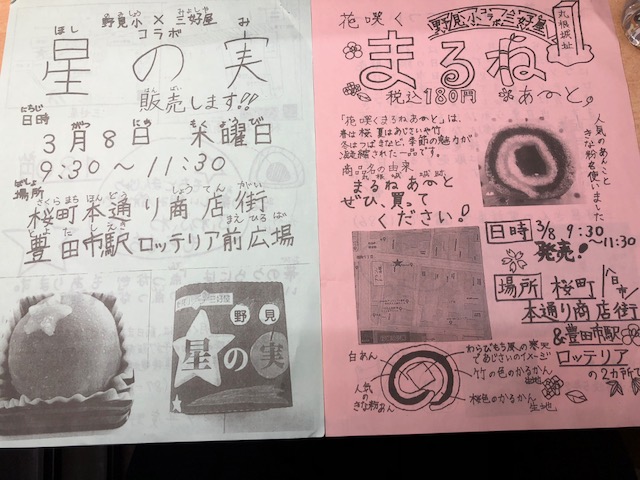 野見小×三好屋
コラボ
星の実
販売します!!
日時
3月8日 木曜日
9:30〜11:30
場所
桜町本通り商店街
豊田市駅ロッテリア前広場
野見
星の実
丸根城址
野見小コラボ三好屋
花咲く
まるね
税込180円
あーと。
「花咲くまるねあーと」は、
春は桜、夏はあじさいや竹
冬はつばきなど、季節の魅力が
凝縮された一品です。
人気のあんこと
きな粉を使いました
商品名の由来
まるねあーと
ぜひ、買って
ください!
日時 3/8 9:30
〜11:30
発売!
場所 桜町
本通り商店街
&豊田市駅
ロッテリア
の2カ所で
白あん
わらびもち風の寒天
であじさいのイメージ
竹の色のかるかん
生地
人気の
きな粉あん
桜色のかるかん
生地